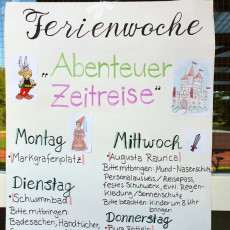 Ferienwoche
„Abenteuer
Zeitreise“
Montag
• Markgrafenplatz
Dienstag
• Schwimmbad
Bitte mitbringen:
Badesachen, Handtücher
Mittwoch
• Augusta Raurica
Bitte mitbringen: Mund-Nasenschutz
Personalausweis / Reisepass,
festes Schuhwerk, evtl. Regen-
kleidung / Sonnenschutz
Bitte beachten: Kinder um 8 Uhr
bringen
Donnerstag
• Burg Rötteln